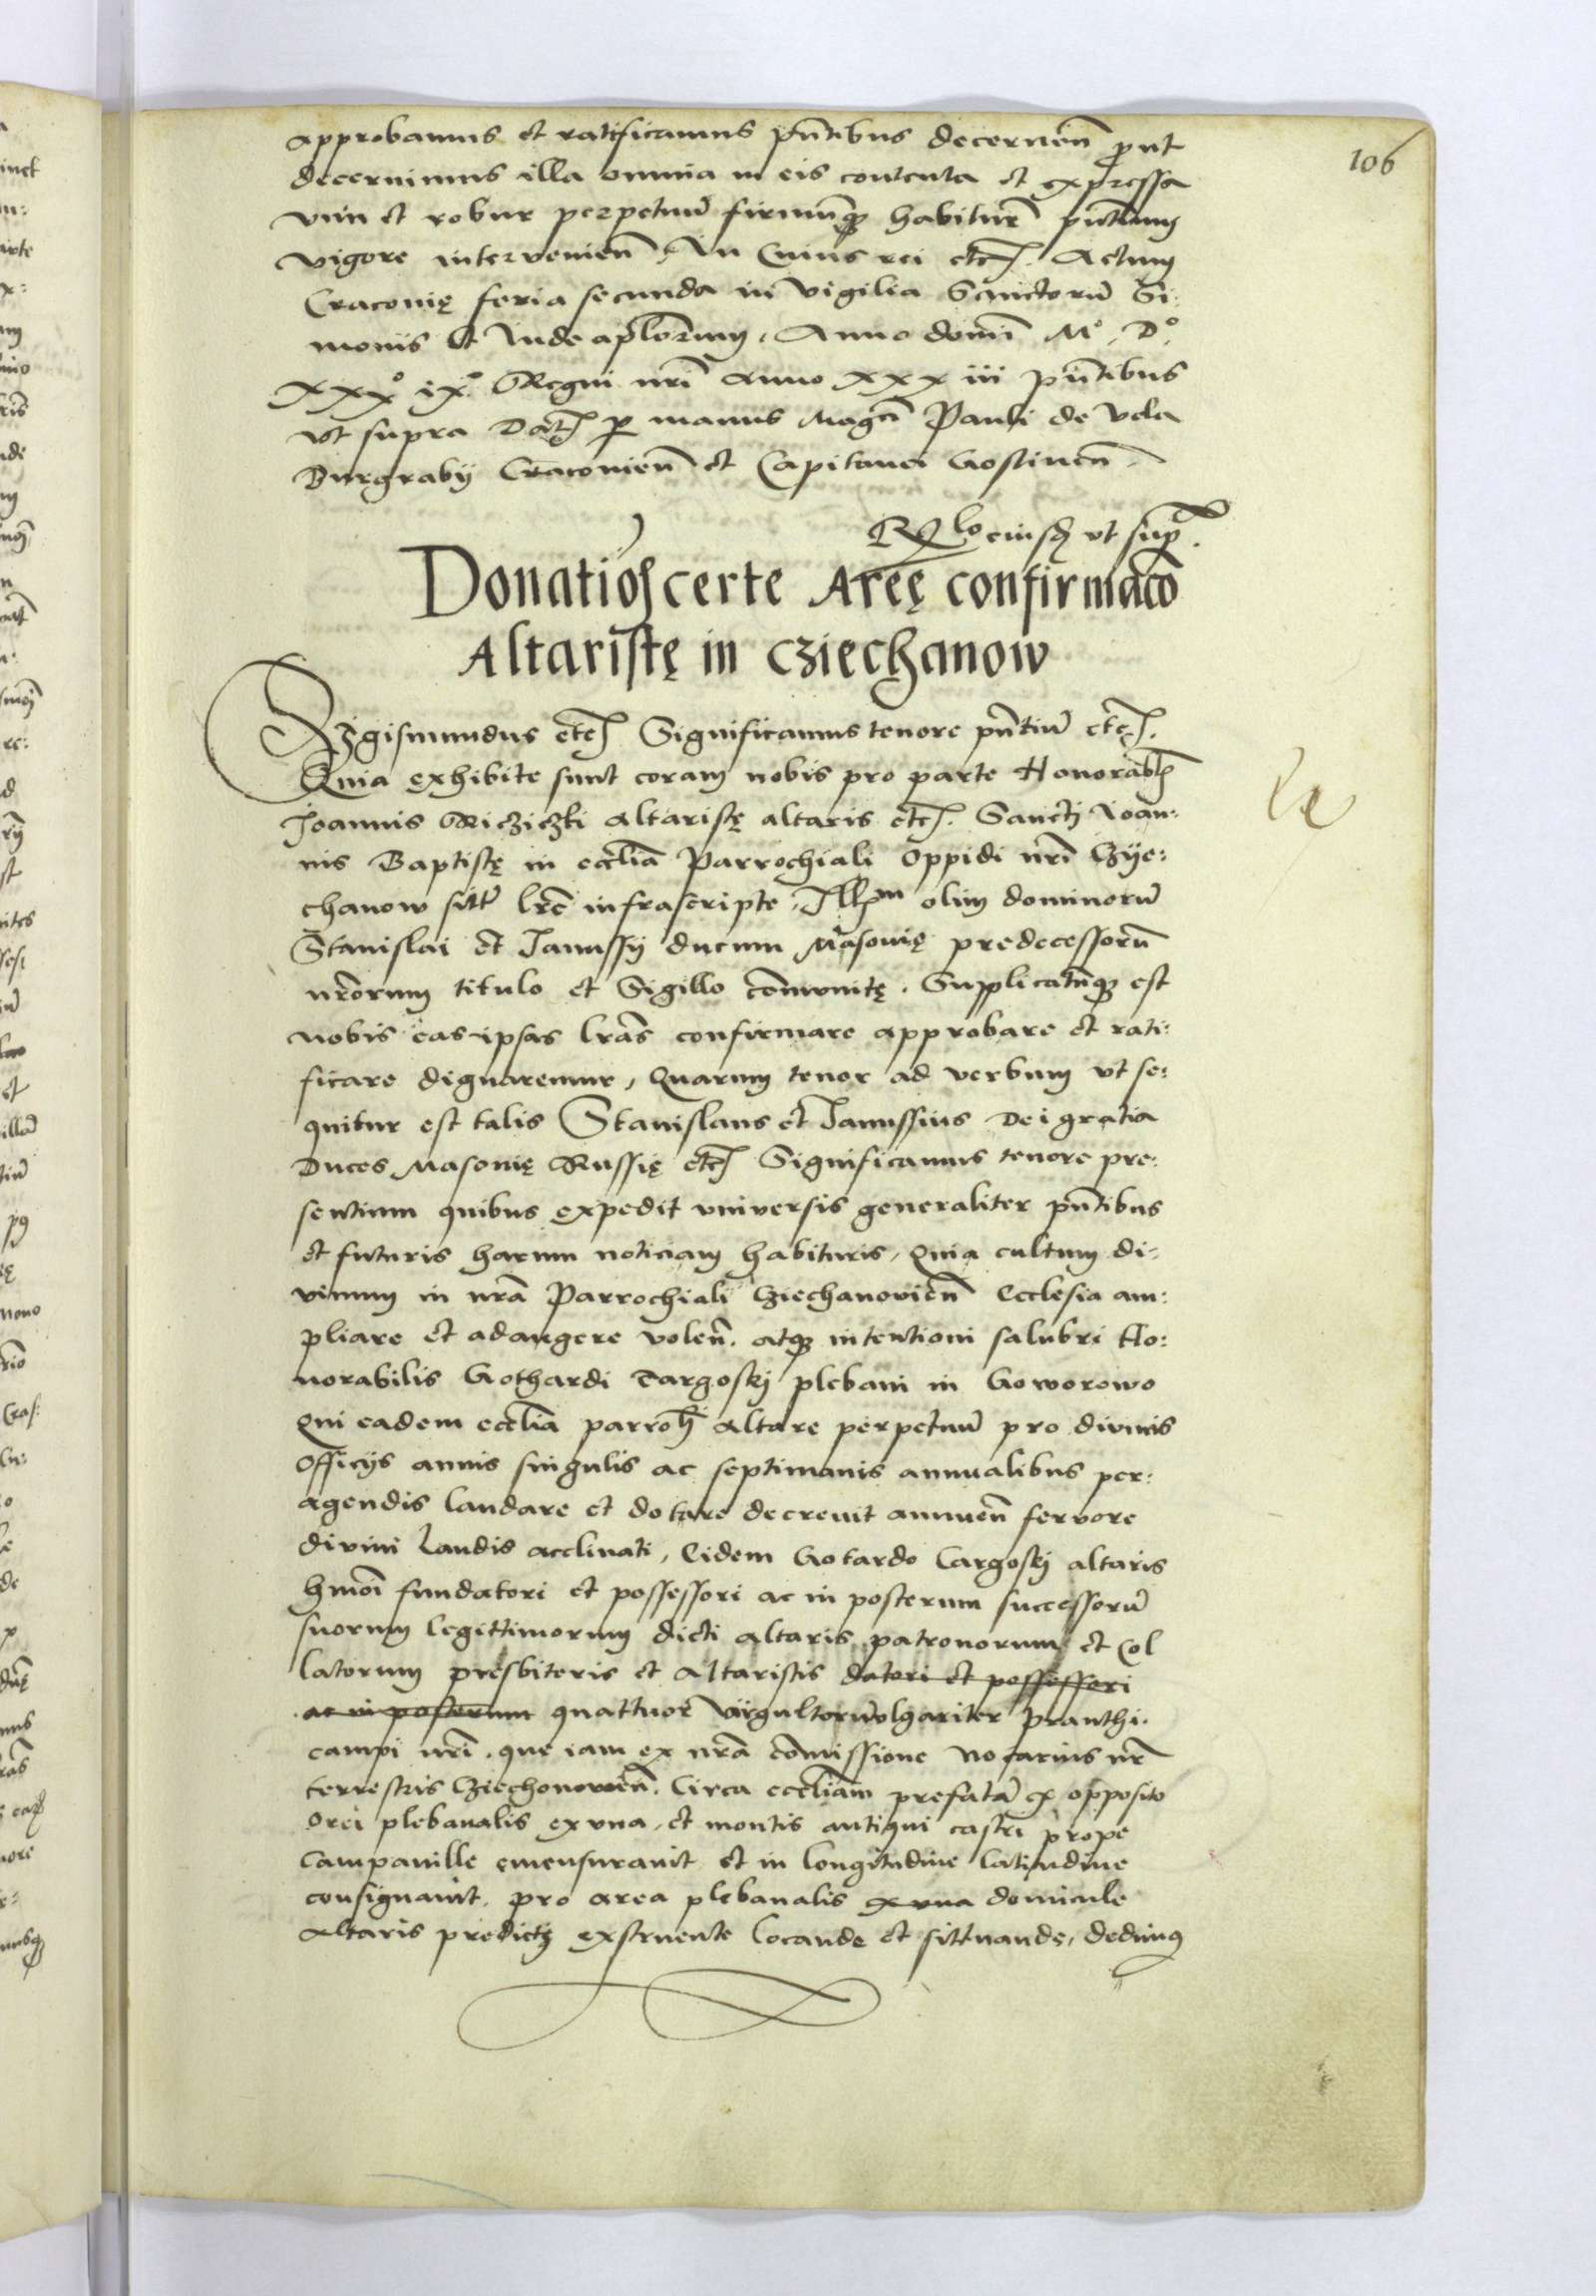 106
approbamus et ratificamus pn̄tibus decernen̄ prout
decernimus illa omnia in eis contenta et expressa
vim et robur perpetuū firmumq̃ habiturū pn̄tium
vigore intervenien̄. In Cuius rei etc̄. Actum
Cracovię feria secunda in vigilia Sanctorū Si:
monis et Iude aplorum. Anno domī Mº. Dº.
XXXº ixº. Regni nrī Anno XXX iii pn̄tibus
vt supra Dat̄ p manus Magcī Pauli de Vola
Burgrabij Cracovien̄ et Capitanei Gostinen̄.
Rlo eiusd̄ vt supr̄.
Donatiōs certe Areę confirmacō
Altaristę in Cziechanow
Sigismundus etc̄ Significamus tenore pn̄tiū etc̄.
Quia exhibite sunt coram nobis pro parte Honorabl̄
Joannis Altaristę altaris etc̄. Sancti Ioan:
nis Baptistę in eccliā Parrochiali Oppidi nrī Czye:
chanow sitt̄ lrē infrascripte, Illm olim dominorū
Stanislai et Janussij ducum Masovię predecessorū
nrōrum titulo et Sigillo cōmunitę. Supplicatūq̃ est
nobis eas ipsas lrās confirmare approbare et rati:
ficare dignaremur, Quarum tenor ad verbum vt se:
quitur est talis Stanislaus et Janussius Dei gratia
Duces Masovię Russię etc̄ Significamus tenore pre:
sentium quibus expedit vniversis generaliter pn̄tibus
et futuris harum noticiam habituris, Quia cultum di:
vinum in nrā Parrochiali Cziechanovien̄ Ecclesia am:
pliare et adaugere volen̄. atq̃ intentioni salubri Ho:
norabilis Gothardi Targoskj plebani in Goworowo
Qui eadem eccliā parroh̄ Altare perpetuū pro divinis
Officijs annis singulis ac septimanis annualibus per:
agendis laudare et dotare decrevit annuen̄ fervore
divini laudis acclinati, Eidem Gotardo Cargoskj altaris
hmōi fundatori et possessori ac in posterum successorū
suorum legittimorum dicti altaris patronorum et Col
latorum presbiteris et Altaristis datori et possessori
ac in posterum quattuor virgultorū vlgariter Pranthi.
campi nrī. que iam ex nrā cōmissione Notarius nr̄
terrestris Cziechonovien̄. Circa eccliam prefatā ex opposito
Orei plebanalis ex vna. et montis antiqui castri prope
Campanille emensuravit et in longitudine latitudine
consignavit. pro area plebanalis ex vna domicule
Altaris predictę exstruente locande et sittuande, dedimus